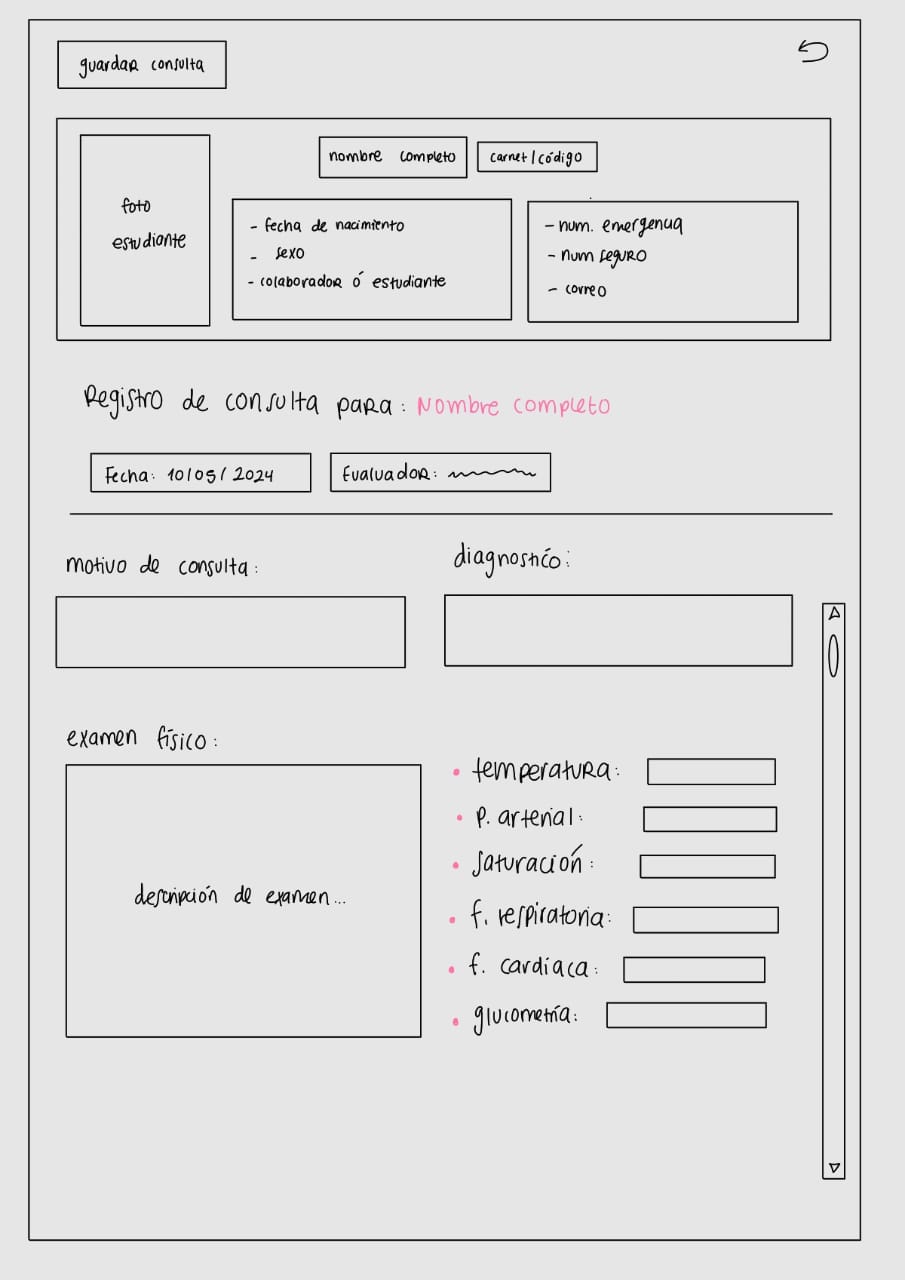 guardar consulta
foto
estudiante
nombre completo
carnet/código
- fecha de nacimiento
- sexo
- colaborador ó estudiante
- num. emergencia
- num seguro
- correo
Registro de consulta para: Nombre completo
Fecha: 10/05/2024
Evaluador:
motivo de consulta:
diagnostíco:
examen físico:
descripción de examen...
• temperatura:
• P. arterial:
• saturación:
• f. respiratoria:
• f. cardíaca:
• glucometría: